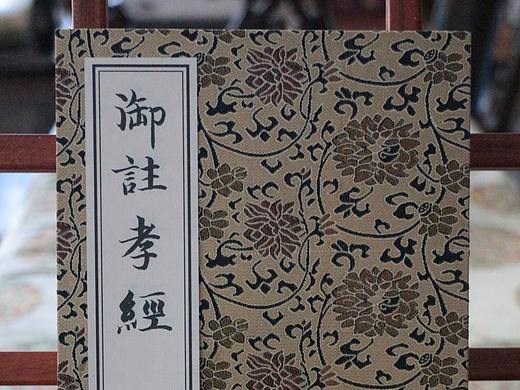 御註孝經